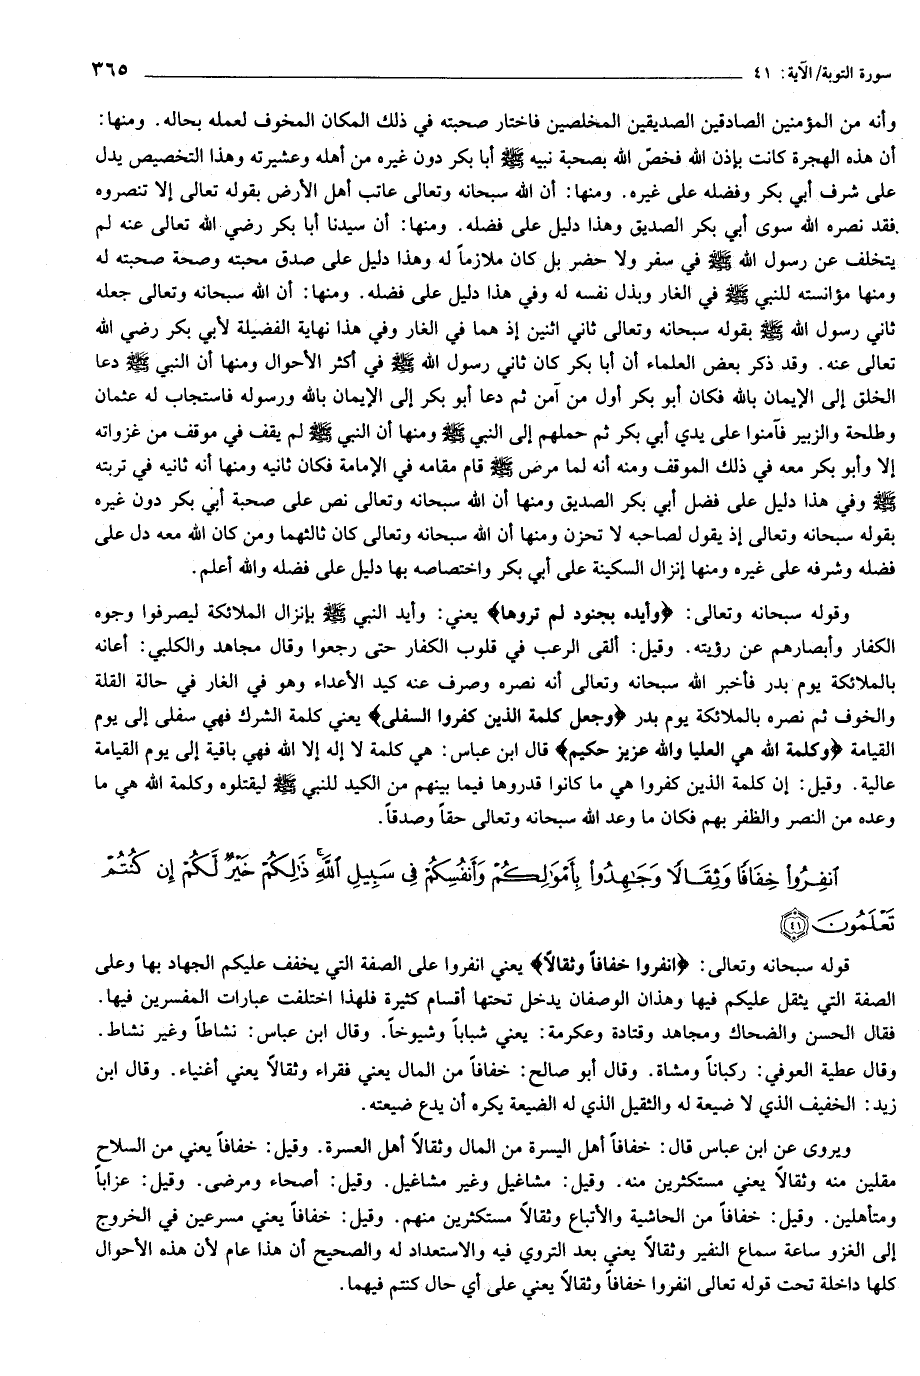 سورة التوبة/ الآية: ٤١ ٣٦٥
وأنه من المؤمنين الصادقين الصديقين المخلصين فاختار صحبته في ذلك المكان المخوف لعمله بحاله. ومنها:
أن هذه الهجرة كانت بإذن الله فخصّ الله بصحبة نبيه ﷺ أبا بكر دون غيره من أهله وعشيرته وهذا التخصيص يدل
على شرف أبي بكر وفضله على غيره. ومنها: أن الله سبحانه وتعالى عاتب أهل الأرض بقوله تعالى إلا تنصروه
فقد نصره الله سوى أبي بكر الصديق وهذا دليل على فضله. ومنها: أن سيدنا أبا بكر رضي الله تعالى عنه لم
يتخلف عن رسول الله ﷺ في سفر ولا حضر بل كان ملازماً له وهذا دليل على صدق محبته وصحة صحبته له
ومنها مؤانسته للنبي ﷺ في الغار وبذل نفسه له وفي هذا دليل على فضله. ومنها: أن الله سبحانه وتعالى جعله
ثاني رسول الله ﷺ بقوله سبحانه وتعالى ثاني اثنين إذ هما في الغار وفي هذا نهاية الفضيلة لأبي بكر رضي الله
تعالى عنه. وقد ذكر بعض العلماء أن أبا بكر كان ثاني رسول الله ﷺ في أكثر الأحوال ومنها أن النبي ﷺ دعا
الخلق إلى الإيمان بالله فكان أبو بكر أول من آمن ثم دعا أبو بكر إلى الإيمان بالله ورسوله فاستجاب له عثمان
وطلحة والزبير فآمنوا على يدي أبي بكر ثم حملهم إلى النبي ﷺ ومنها أن النبي ﷺ لم يقف في موقف من غزواته
إلا وأبو بكر معه في ذلك الموقف ومنه أنه لما مرض ﷺ قام مقامه في الإمامة فكان ثانيه ومنها أنه ثانيه في تربته
ﷺ وفي هذا دليل على فضل أبي بكر الصديق ومنها أن الله سبحانه وتعالى نص على صحبة أبي بكر دون غيره
بقوله سبحانه وتعالى إذ يقول لصاحبه لا تحزن ومنها أن الله سبحانه وتعالى كان ثالثهما ومن كان الله معه دل على
فضله وشرفه على غيره ومنها إنزال السكينة على أبي بكر واختصاصه بها دليل على فضله والله أعلم.
وقوله سبحانه وتعالى: ﴿وأيده بجنود لم تروها﴾ يعني: وأيد النبي ﷺ بإنزال الملائكة ليصرفوا وجوه
الكفار وأبصارهم عن رؤيته. وقيل: ألقى الرعب في قلوب الكفار حتى رجعوا وقال مجاهد والكلبي: أعانه
بالملائكة يوم بدر فأخبر الله سبحانه وتعالى أنه نصره وصرف عنه كيد الأعداء وهو في الغار في حالة القلة
والخوف ثم نصره بالملائكة يوم بدر ﴿وجعل كلمة الذين كفروا السفلى﴾ يعني كلمة الشرك فهي سفلى إلى يوم
القيامة ﴿وكلمة الله هي العليا والله عزيز حكيم﴾ قال ابن عباس: هي كلمة لا إله إلا الله فهي باقية إلى يوم القيامة
عالية. وقيل: إن كلمة الذين كفروا هي ما كانوا قدروها فيما بينهم من الكيد للنبي ﷺ ليقتلوه وكلمة الله هي ما
وعده من النصر والظفر بهم فكان ما وعد الله سبحانه وتعالى حقاً وصدقاً.
ٱنفِرُوا۟ خِفَافًا وَثِقَالًا وَجَٰهِدُوا۟ بِأَمْوَٰلِكُمْ وَأَنفُسِكُمْ فِى سَبِيلِ ٱللَّهِ ۚ ذَٰلِكُمْ خَيْرٌ لَّكُمْ إِن كُنتُمْ
تَعْلَمُونَ ﴿٤١﴾
قوله سبحانه وتعالى: ﴿انفروا خفافاً وثقالاً﴾ يعني انفروا على الصفة التي يخفف عليكم الجهاد بها وعلى
الصفة التي يثقل عليكم فيها وهذان الوصفان يدخل تحتها أقسام كثيرة فلهذا اختلفت عبارات المفسرين فيها.
فقال الحسن والضحاك ومجاهد وقتادة وعكرمة: يعني شباباً وشيوخاً. وقال ابن عباس: نشاطاً وغير نشاط.
وقال عطية العوفي: ركباناً ومشاة. وقال أبو صالح: خفافاً من المال يعني فقراء وثقالاً يعني أغنياء. وقال ابن
زيد: الخفيف الذي لا ضيعة له والثقيل الذي له الضيعة يكره أن يدع ضيعته.
ويروى عن ابن عباس قال: خفافاً أهل اليسرة من المال وثقالاً أهل العسرة. وقيل: خفافاً يعني من السلاح
مقلين منه وثقالاً يعني مستكثرين منه. وقيل: مشاغيل وغير مشاغيل. وقيل: أصحاء ومرضى. وقيل: عزاباً
ومتأهلين. وقيل: خفافاً من الحاشية والأتباع وثقالاً مستكثرين منهم. وقيل: خفافاً يعني مسرعين في الخروج
إلى الغزو ساعة سماع النفير وثقالاً يعني بعد التروي فيه والاستعداد له والصحيح أن هذا عام لأن هذه الأحوال
كلها داخلة تحت قوله تعالى انفروا خفافاً وثقالاً يعني على أي حال كنتم فيهما.